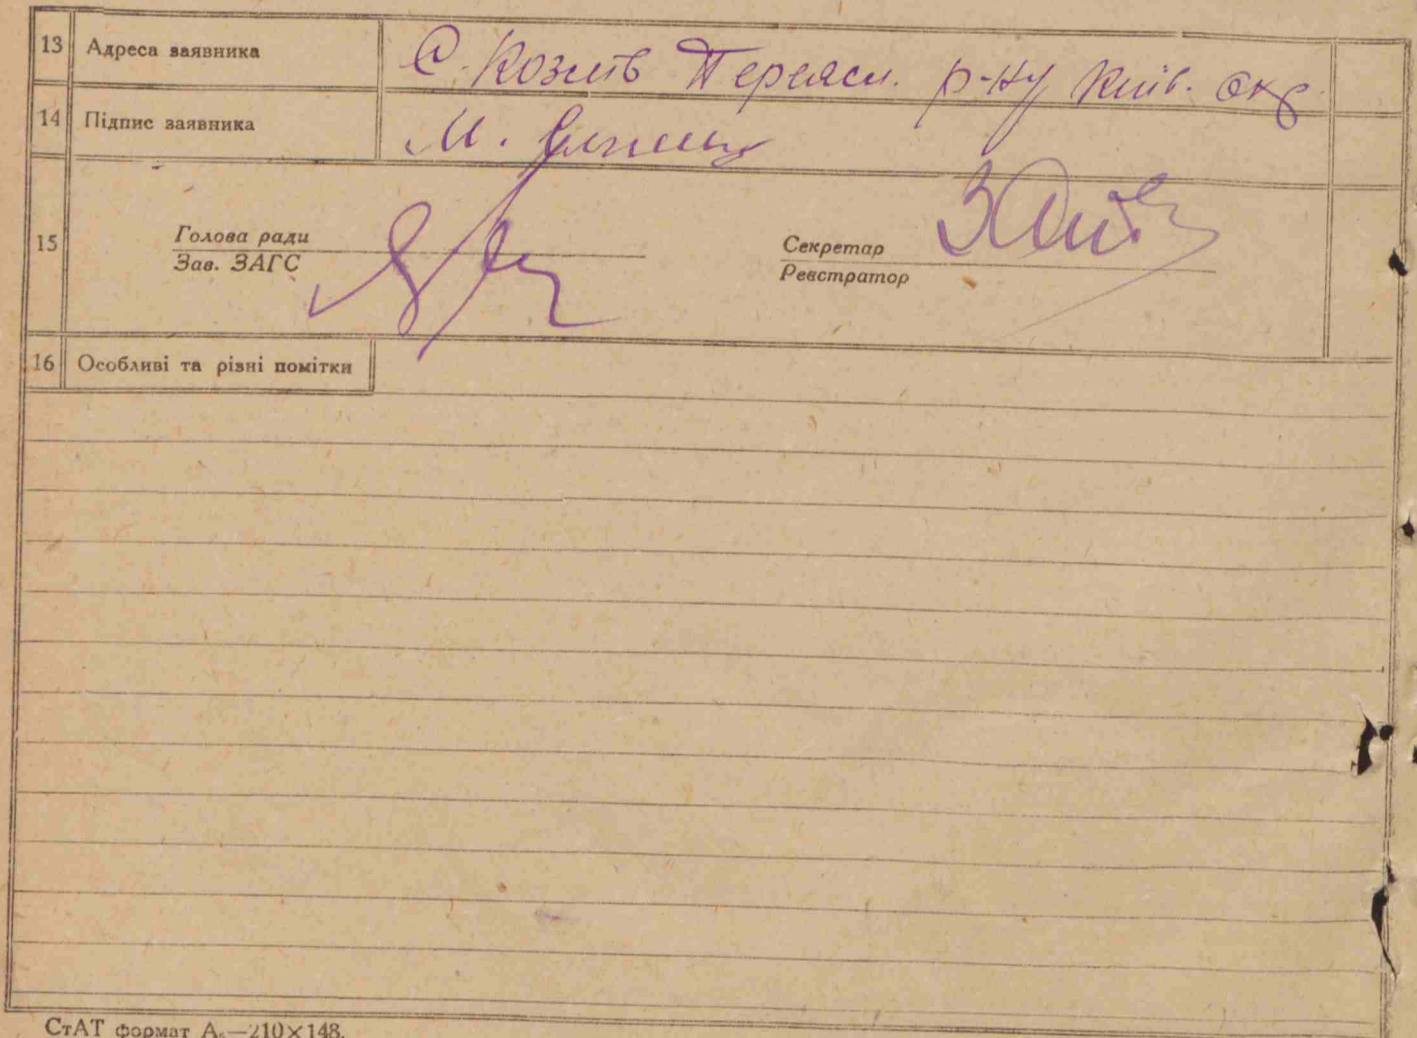 13 Адреса заявника С. Козлів Переясл. р-ну Київ. окр.
14 Підпис заявника М.
15 Голова ради Секретар
Зав. ЗАГС Реєстратор
16 Особливі та різні помітки
СтАТ формат А₅—210×148.